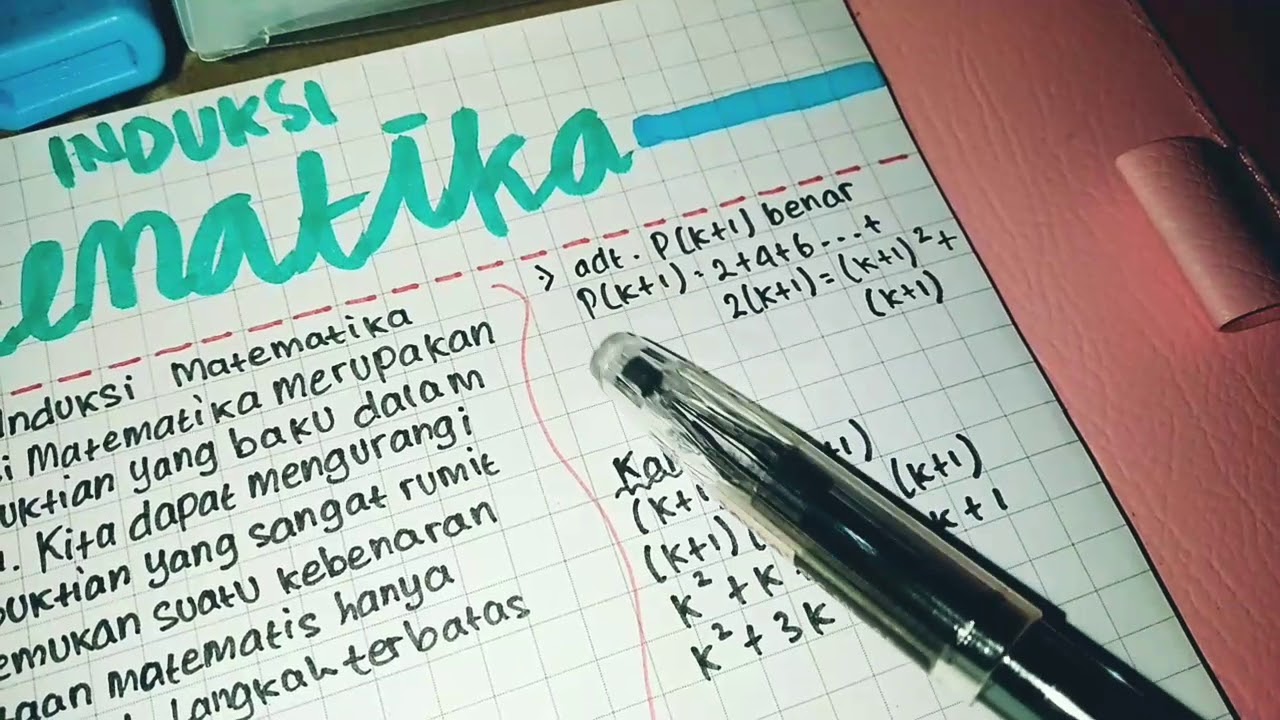 INDUKSI
ematika
Induksi Matematika
i Matematika merupakan
uktian yang baku dalam
. Kita dapat mengurangi
uktian yang sangat rumit
emukan suatu kebenaran
taan matematis hanya
langkah terbatas
:> adt. P(k+1) benar
P(k+1) = 2+4+6...+
2(k+1) = (k+1)² +
(k+1)
+1)
(k+1 (k+1)
(k+1) ( k + 1
k² + k
k² + 3k